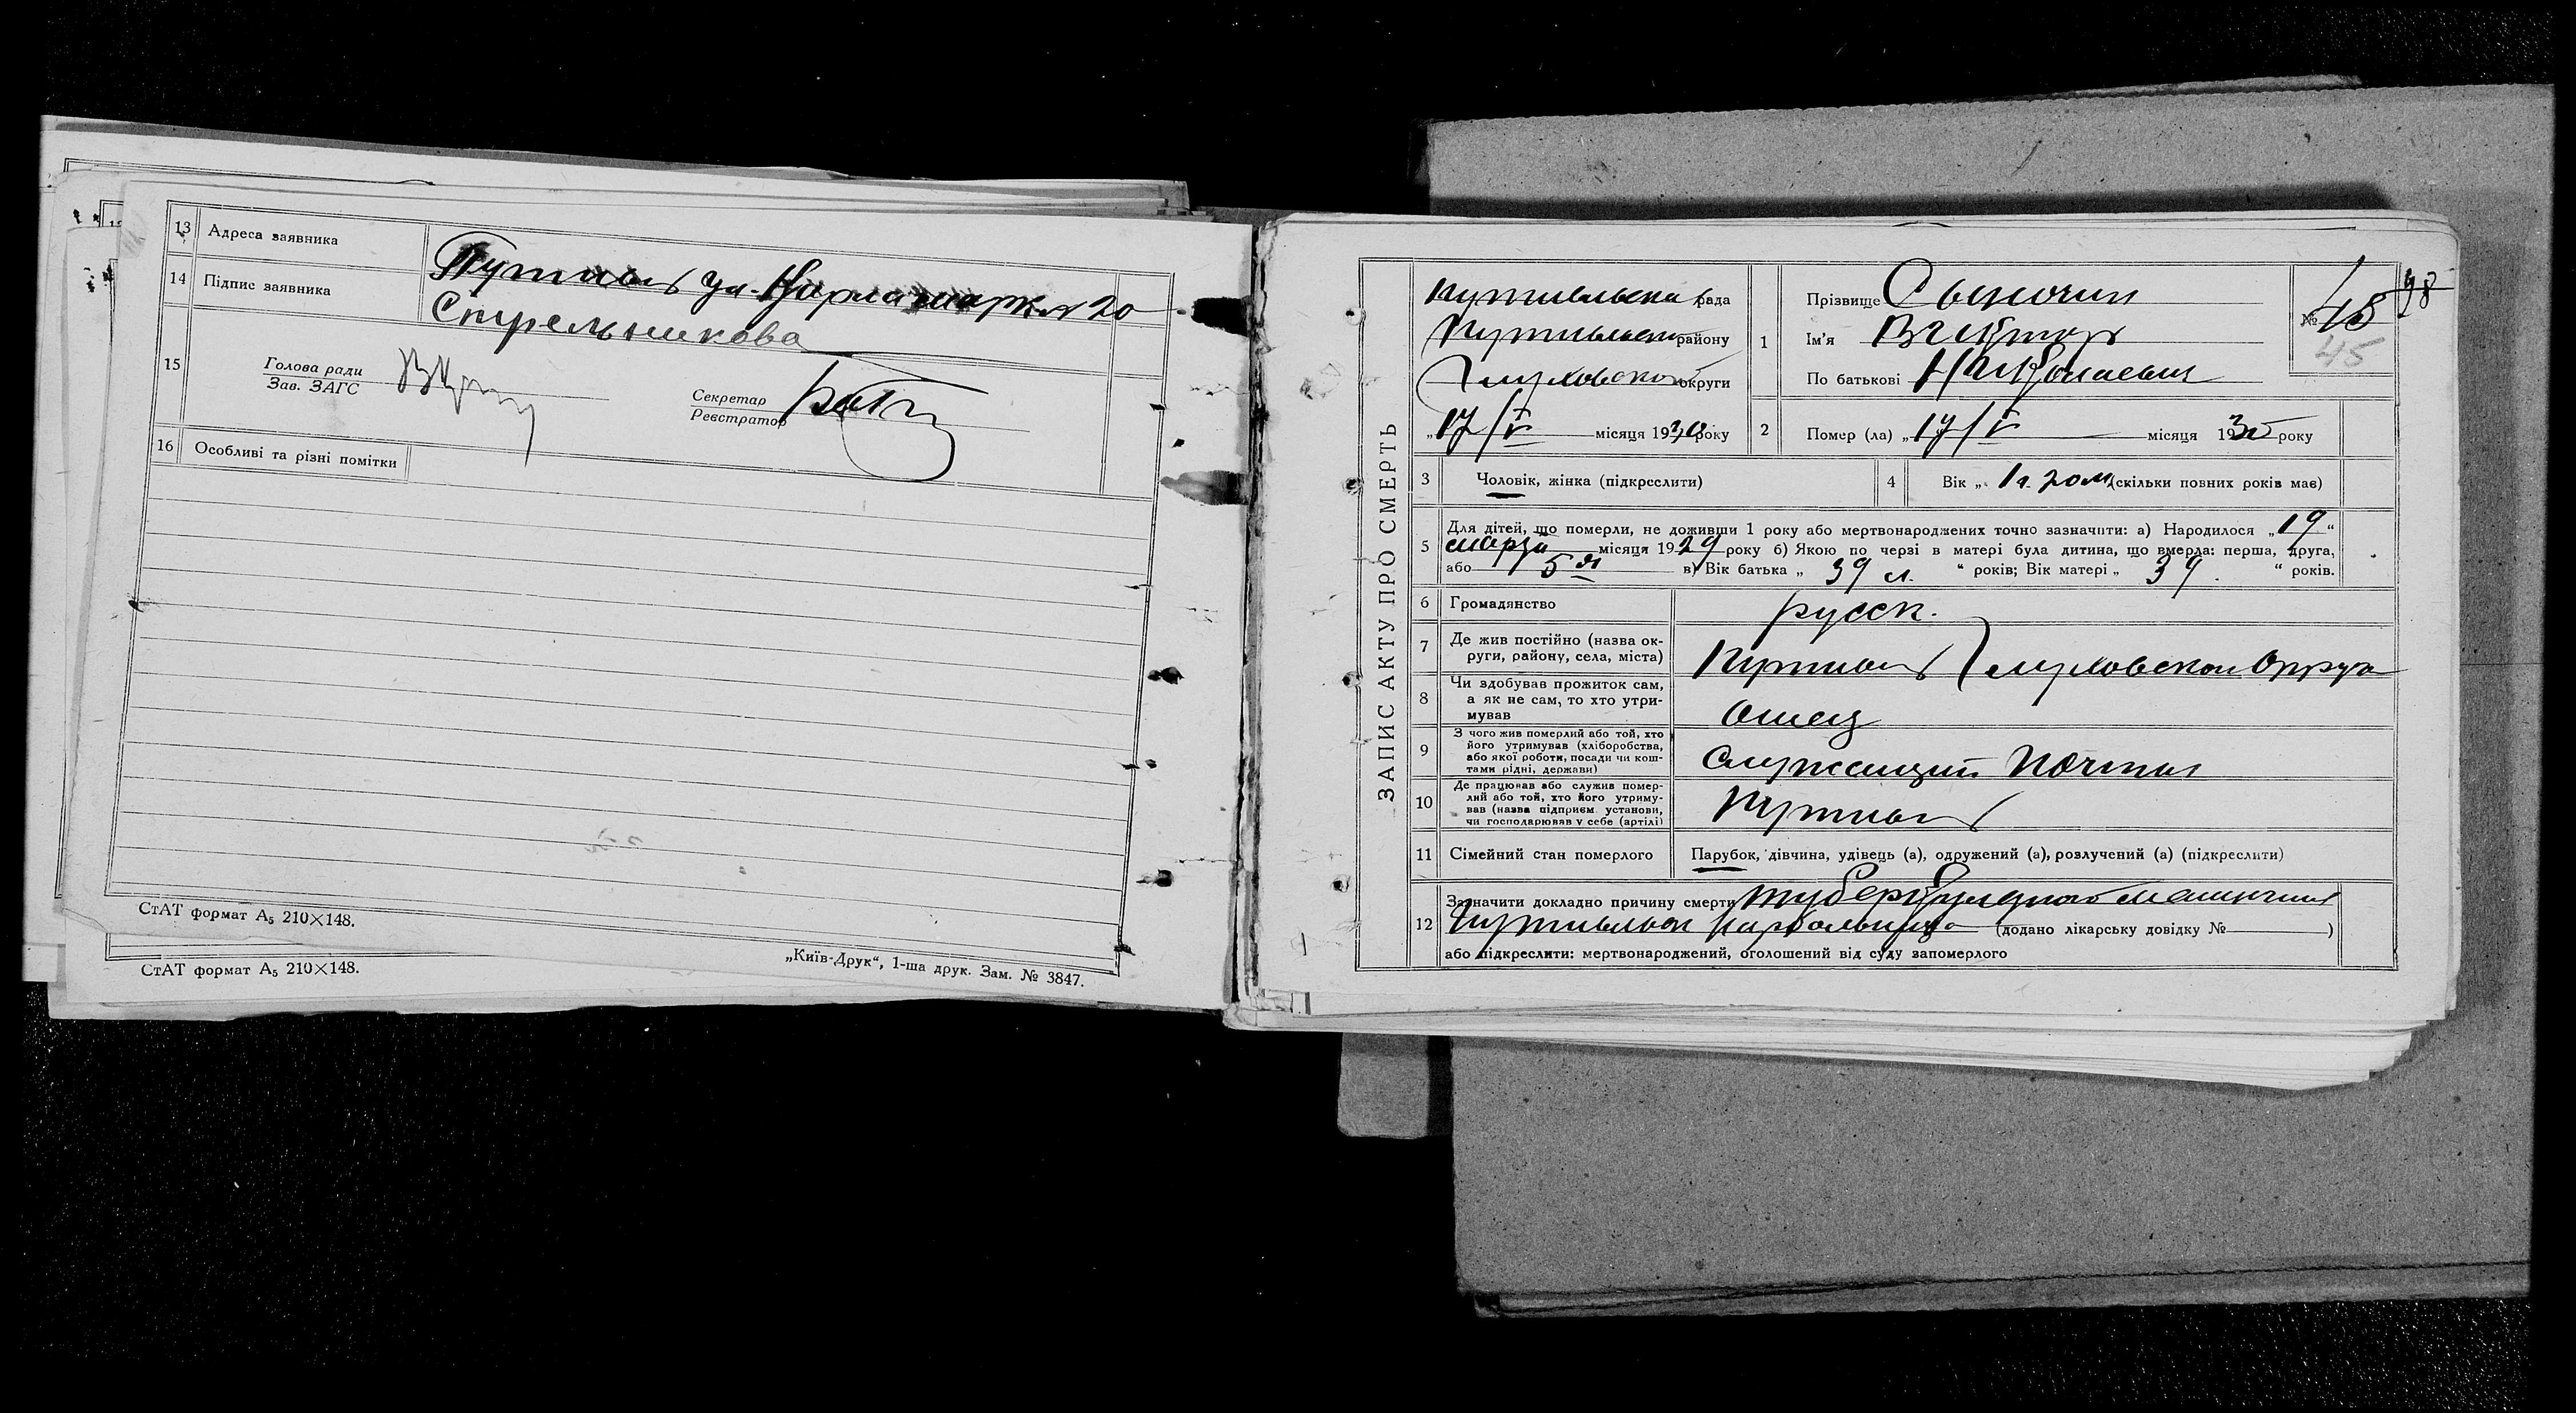 13 Адреса заявника
Путивль ул. Карла Маркса 20
14 Підпис заявника
Стрельникова
15
Голова ради
Зав. ЗАГС
Секретар
Реєстратор
16 Особливі та різні помітки
СтАТ формат А5 210×148.
СтАТ формат А5 210×148.
„Київ-Друк“, 1-ша друк. Зам. № 3847.
ЗАПИС АКТУ ПРО СМЕРТЬ
Путивльська рада
Путивльск району
Глуховской округи
„17/V місяця 1930 року
1 Прізвище
Ім'я Виктор
По батькові Николаевич
№ 45
45
98
2 Помер (ла) „17/V місяця 1930 року
3 Чоловік, жінка (підкреслити)
4 Вік „ 1 г. (скільки повних років має)
5 Для дітей, що померли, не доживши 1 року або мертвонароджених точно зазначити: а) Народилося „19“
марта місяця 1929 року б) Якою по черзі в матері була дитина, що вмерла: перша, друга,
або 5 я в) Вік батька „ 39 л. “ років; Вік матері „ 39. “ років.
6 Громадянство русск.
7 Де жив постійно (назва ок-
руги, району, села, міста)
Путивль Глуховской Округа
8 Чи здобував прожиток сам,
а як не сам, то хто утри-
мував
Отец
9 З чого жив померлий або той, хто
його утримував (хліборобства,
або якої роботи, посади чи кош-
тами рідні, держави)
Служащий Почты
10 Де працював або служив помер-
лий або той, хто його утриму-
вав (назва підприєм. установи,
чи господарював у себе (артілі)
Путивль
11 Сімейний стан померлого Парубок, дівчина, удівець (а), одружений (а), розлучений (а) (підкреслити)
12 Зазначити докладно причину смерти
Путивльск (додано лікарську довідку № )
або підкреслити: мертвонароджений, оголошений від суду запомерлого